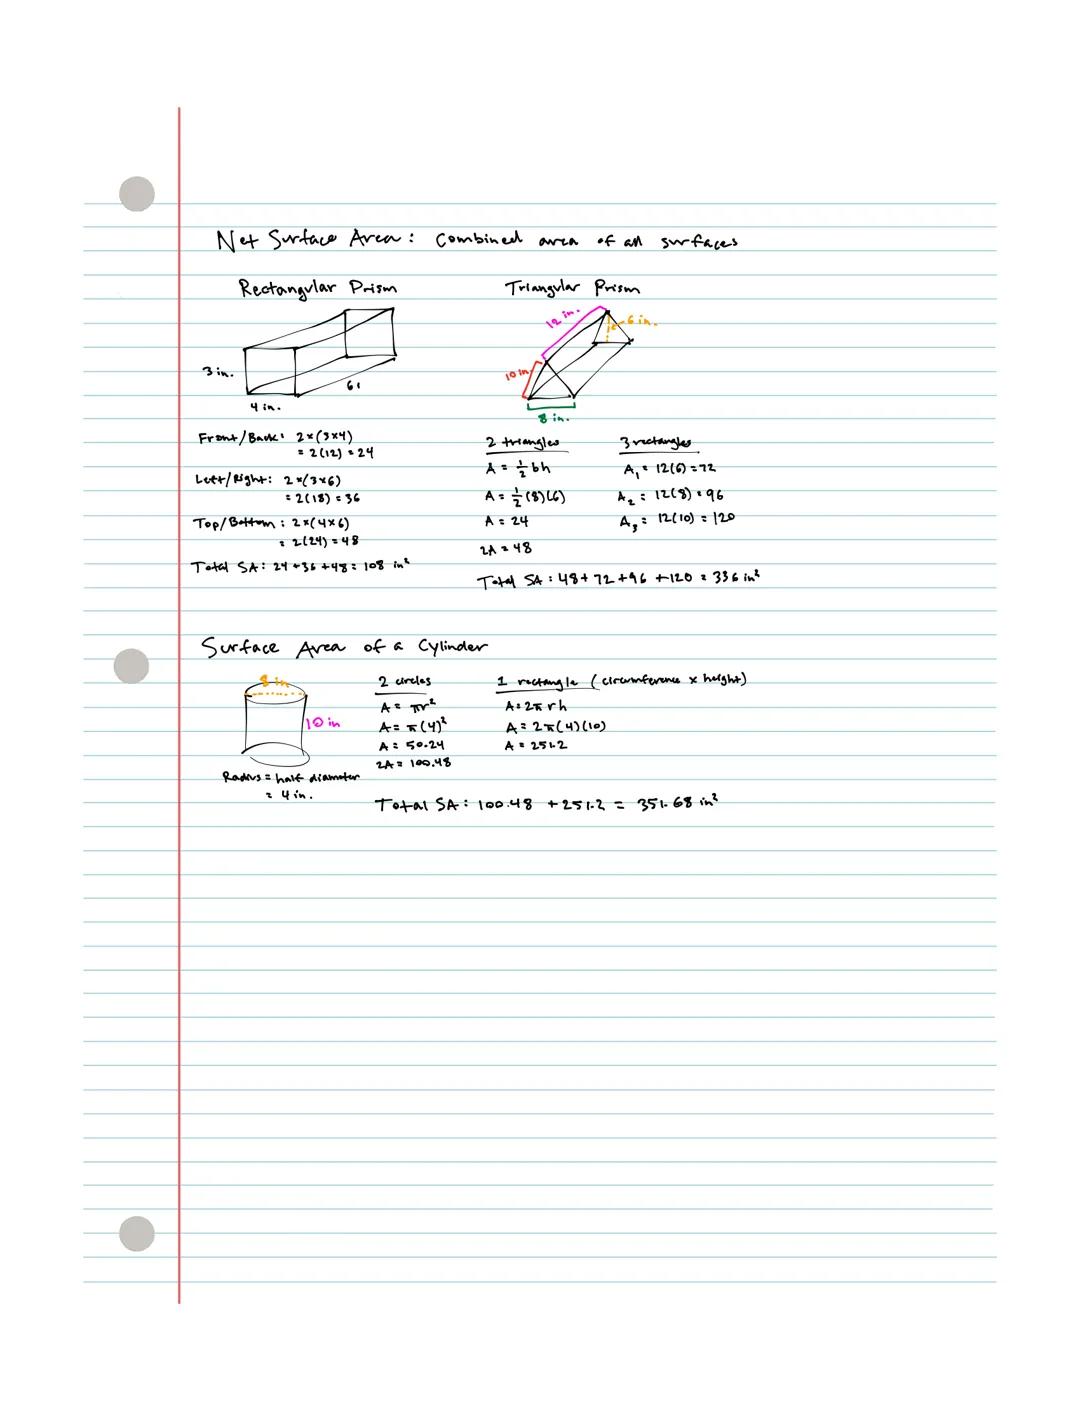 Net Surface Area: Combined area of all surfaces
Rectangular Prism
3 in.
4 in.
6
Front/Back: 2×(3×4)
= 2(12) = 24
Left/Right: 2×(3×6)
= 2(18) = 36
Top/Bottom: 2×(4×6)
= 2(24) = 48
Total SA: 24+36+48 = 108 in²
Triangular Prism
12 in.
6 in.
10 in
8 in.
2 triangles
A = ½ bh
A = ½ (8)(6)
A = 24
2A = 48
3 rectangles
A₁ = 12(6) = 72
A₂ = 12(8) = 96
A₃ = 12(10) = 120
Total SA: 48+72+96+120 = 336 in²
Surface Area of a Cylinder
8 in
10 in
Radius = half diameter
= 4 in.
2 circles
A = πr²
A = π(4)²
A = 50.24
2A = 100.48
1 rectangle (circumference × height)
A = 2πrh
A = 2π(4)(10)
A = 251.2
Total SA: 100.48 + 251.2 = 351.68 in²